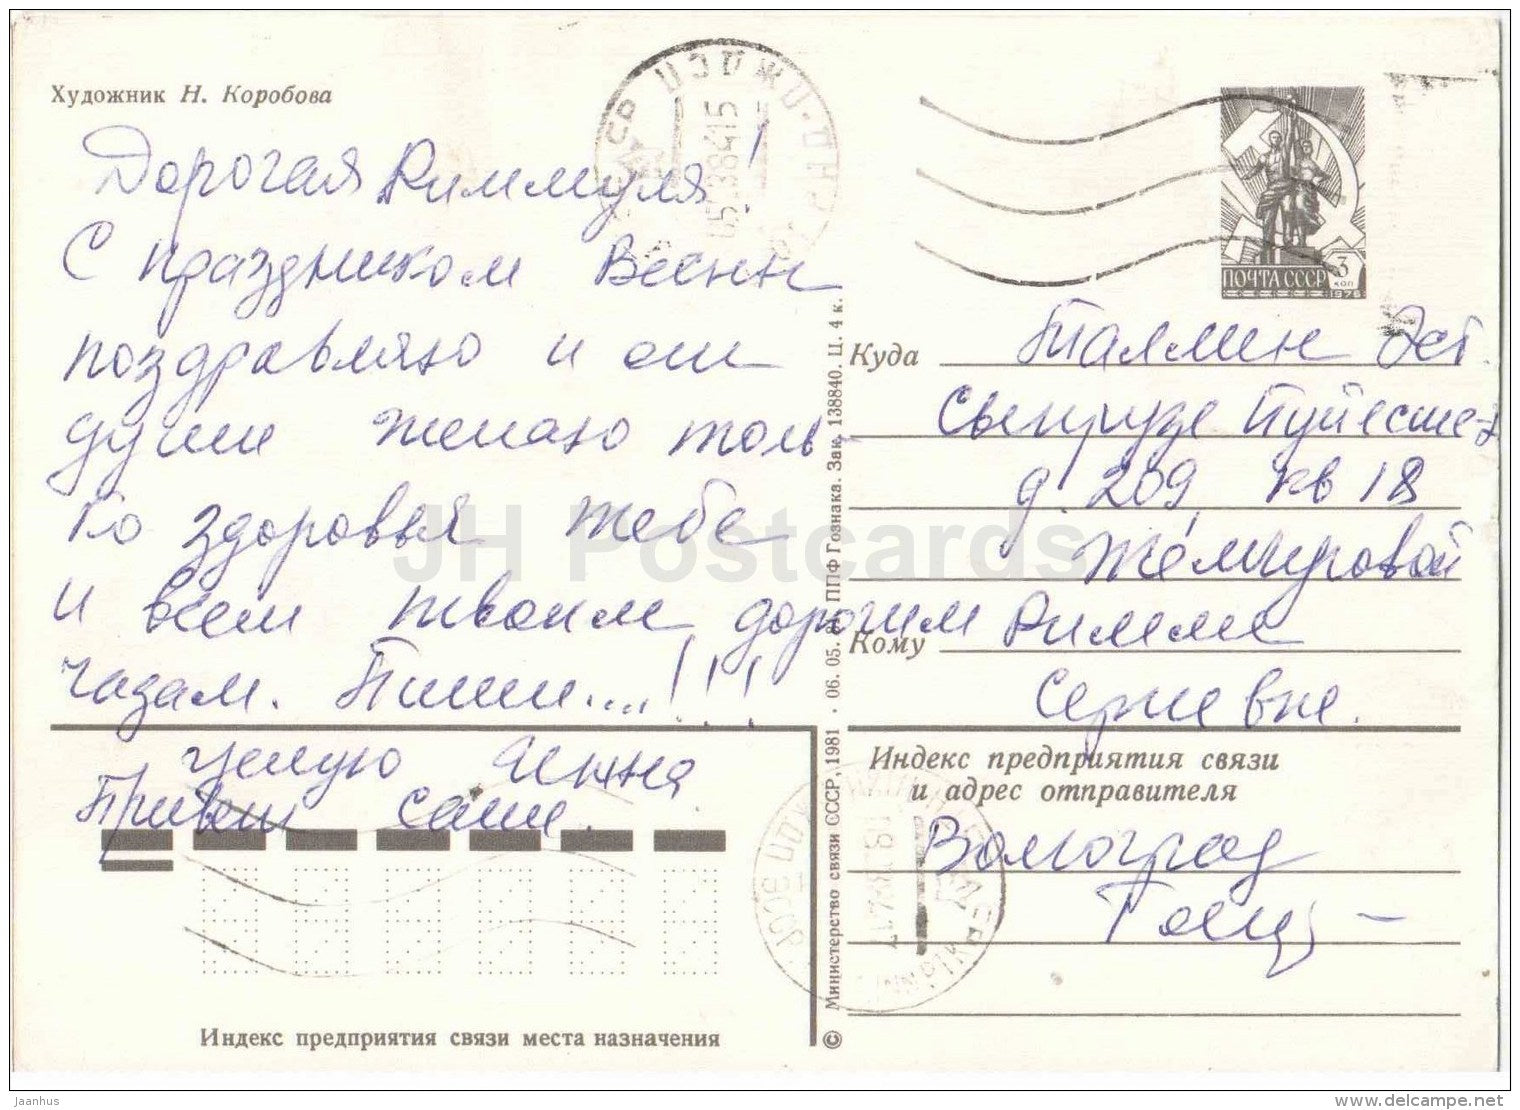 Художник Н. Коробова
Дорогая Риммуля!
С праздником Весны
поздравляю и от
души желаю толь
ко здоровья тебе
и всем твоим дорогим
чадам. Пиши....!!!
Целую Инна
Привет Саше.
ПОЧТА СССР 3 КОП
1976
Куда Таллин Эст.
д. 209, кв 18
Кому Римме
Сергевне.
Индекс предприятия связи
и адрес отправителя
Волгоград
Индекс предприятия связи места назначения
© Министерство связи СССР, 1981 . 06. 05. ППФ Гознака. Зак. 138840. Ц. 4 к.
JH Postcards
Jaanhus
www.delcampe.net